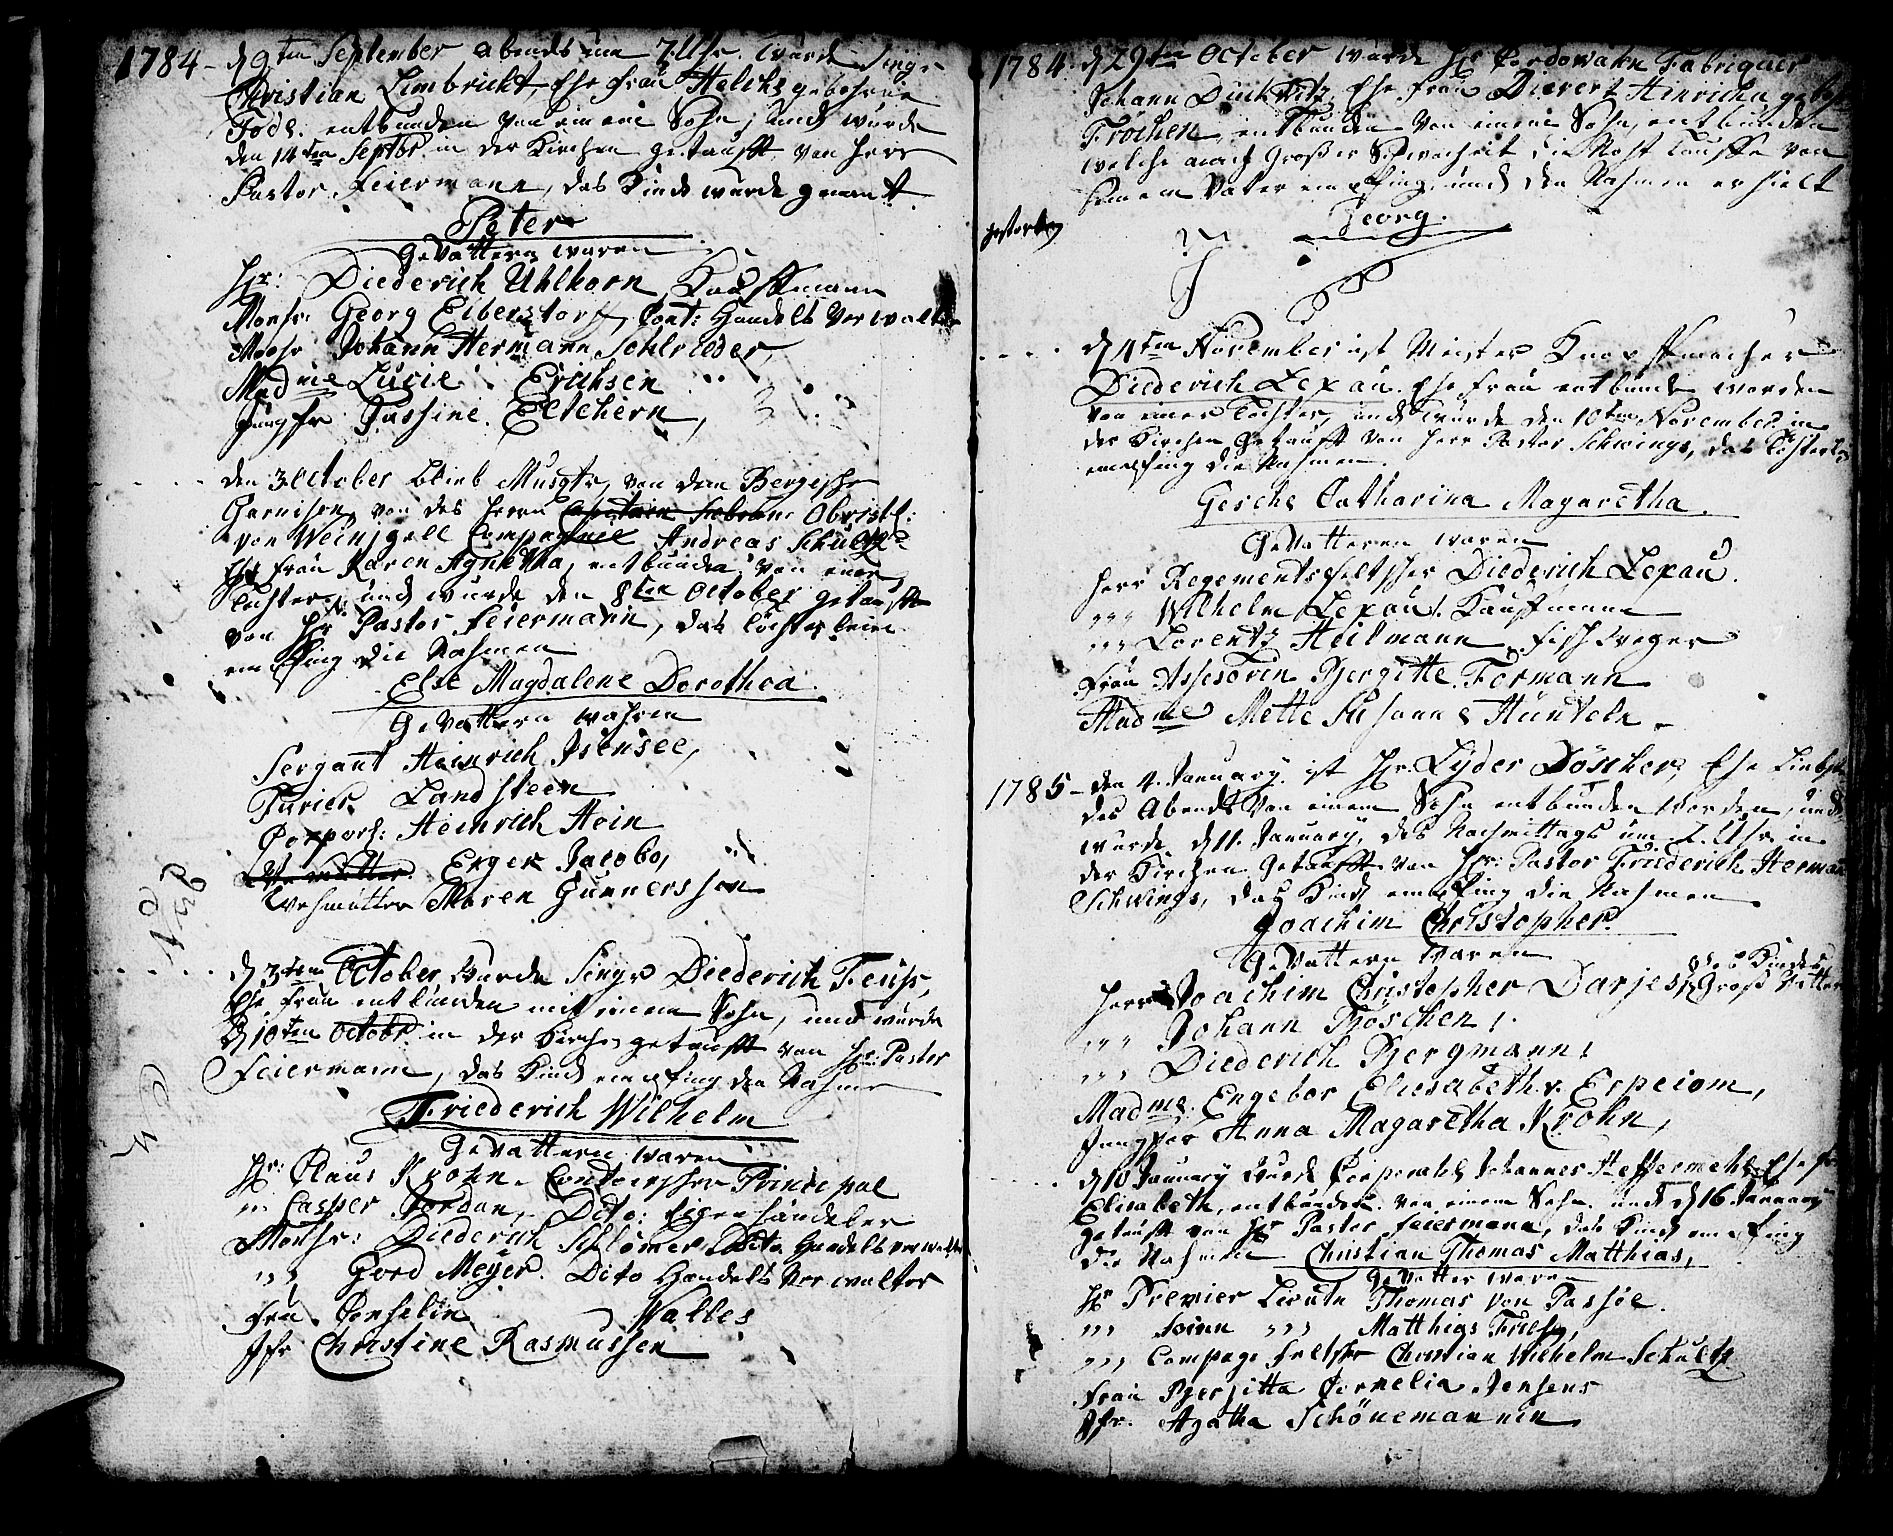 1784 - d 9ten September abends um 7 Uhr wurde Singr
Christian Limbricht, Ehe Frau Helche gebohrne
Tode. entbunden von einem Sohn, und wurde
den 14ten Septbr in der Kirchen getaufft von Herr
Pastor Feiermann, das Kind wurde genant
Peter
Gevattern waren
Hr: Diederich Uhlhorn Kauffmann
Monsr. Georg Eiberstorff, Cont: Handels Verwalter
Monsr Johann Hermann Schlrieder,
Madme Lucie Erichsen
Jungfr Tassine Eltchern,
den 3 October blieb Musqtr, von dem Bergischen
Garnison, von des Herrn Capitain Obristl:
von Weinigell Compagnie Andreas Schultz
Ehe Frau Karen Agnetha, entbunden von einer
Tochter, und wurde den 8ten October getaufft
von Hr: Pastor Feiermann, das Töchterlein
empfing die Nahmen
Else Magdalene Dorothea
Gevattern wahren
Sergant Heinrich Isensee,
Furier Landsteen
Corporl: Heinrich Hein
Enger Jacobs,
Wehmutter Maren Gunnerssen
d 3ten October wurde Singr Diederich Feuss,
Ehe Frau entbunden mit einem Sohn, und wurde
d 10ten Octobr in der Kirchen getaufft von Hr: Pastor
Feiermann, das Kind empfing den Nahmen
Friederich Wilhelm
Gevattern waren
Hr: Claus Krohn, Contoirscher Principal
,,, Casper Jordan, Dito:
Monsr: Diederich Schlömer Dito Handels verwalter
,,, Gerd Meyer. Dito Handels Verwalter
Frau Cornelin Walles
Jfr Christine Rasmussen
1784. d 29ten October wurde Hr Cordowahn Fabriquer
Johann Duckwitz, Ehe Frau Dievert Hinrichn gebohr
Frochen, entbunden von einem Sohn, entbunden
welche nach großer Schwacheit die Noht Tauffe von
seinem Vater empfing, und den Nahmen erhielt
Georg.
gestorben
d 4ten November ist Meister Knopffmacher
Diederich Lexau Ehe Frau entbunden worden
von einer Tochter, und wurde den 10ten November in
der Kirchen getaufft von Herr Pastor Schwings, das Töchterlein
empfing die Nahmen.
Gesche Catharina Magaretha.
Gevatteren waren
Herr Regementsfeltscher Diederich Lexau.
,,, Wilhelm Lexau. Kauffmann
,,, Lorentz Heilmann
Frau Assesorin Bergitte Formann
Madme Mette Susanne Hünteln
1785 - den 4. January ist Hr: Lyder Döscher, Ehe Liebste
des Abends von einem Sohn entbunden worden, und
wurde d 11. January, des Nachmittags um 2. Uhr in
der Kirchen getaufft von Hr: Pastor Friederich Herman
Schwings, das Kind empfing die Nahmen
Joachim Christopher.
Gevattern waren
Herr Joachim Christopher Darjes, des Kindes Groß Vatter
,,, Johann Böschen,
,,, Diederich Bergmann,
Madme Engebor Eliesabeth v. Erpeiom,
Jungfer Anna Magaretha Krohn,
d 10 January wurde Corporahl Johannes Heffermehl Ehe Fr
Elisabeth, entbunden von einem Sohn und d 16 January
getaufft von Hr Pastor Feiermann, das Kind empfing
die Nahmen Christian Thomas Matthias,
Gevatter waren
Hr Premier Lieutn Thomas von Passöe.
,,, ,,, Matthias
,,, Compage Feltscher Christian Wilhelm Schultz
Frau Berjitta Cornelia Jensens
Jfr. Agatha Schönemannen